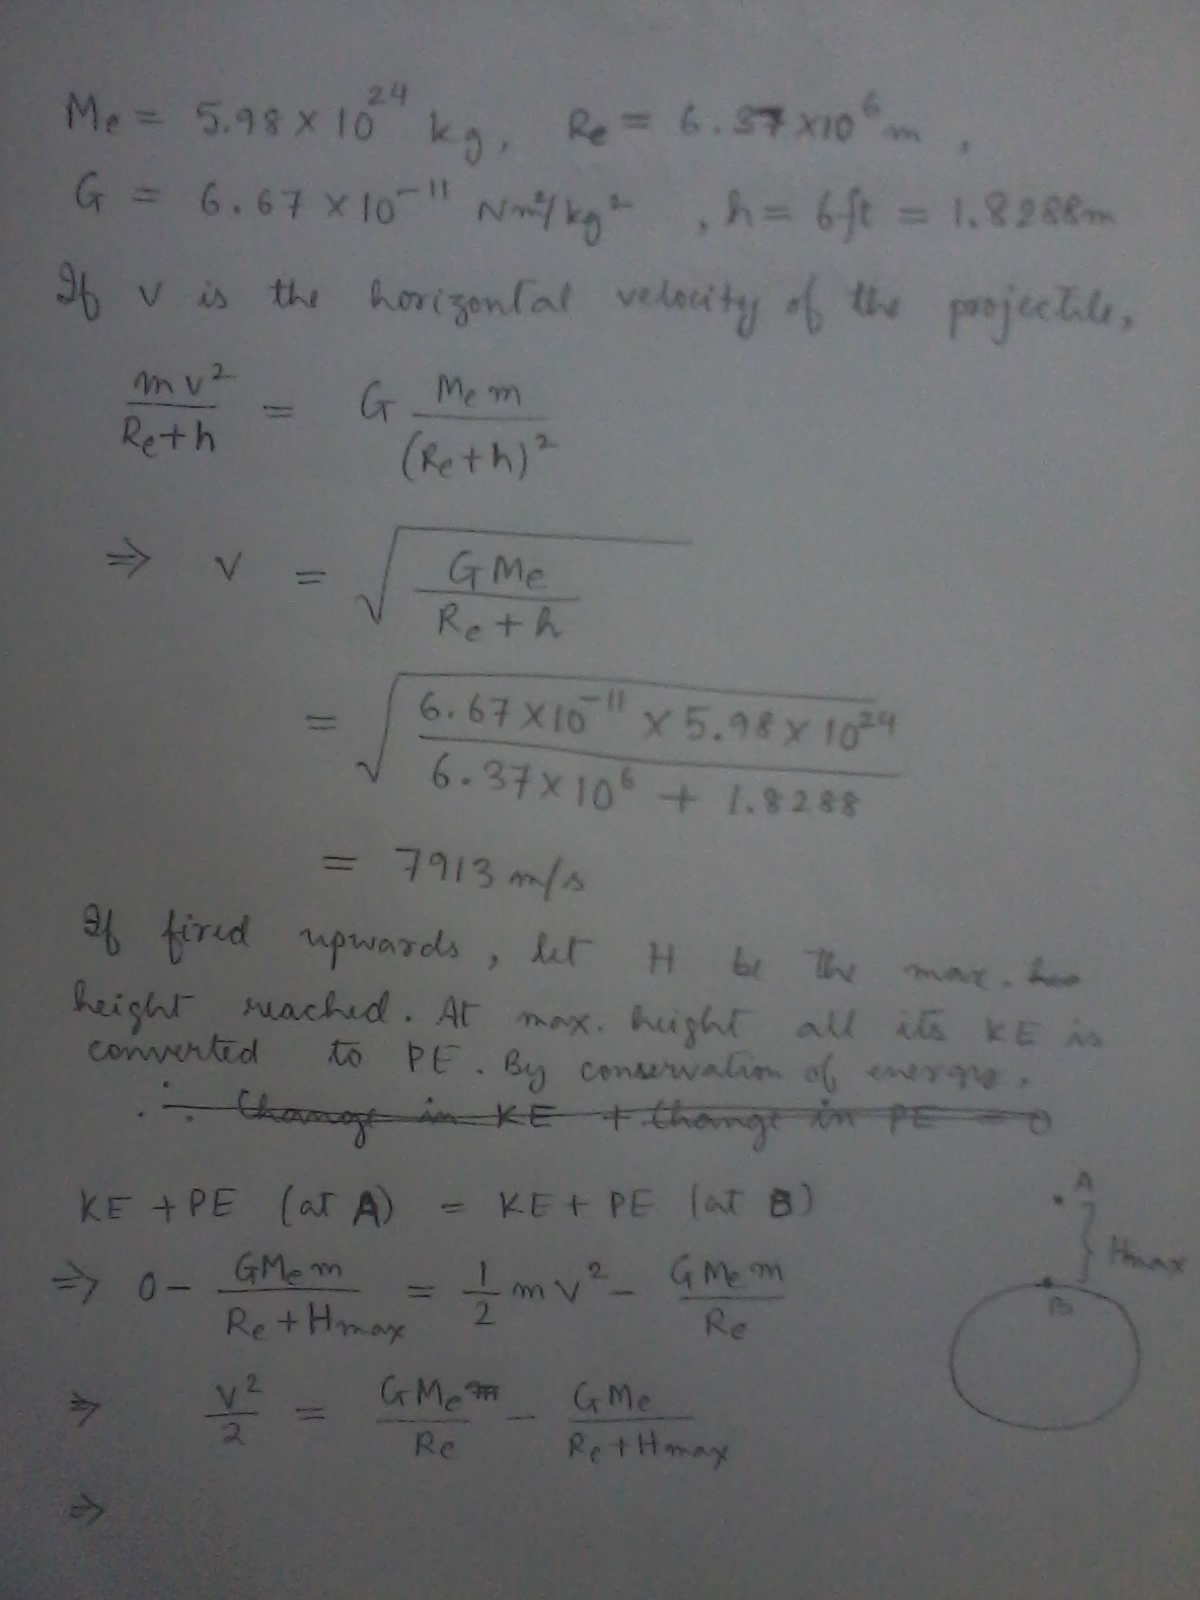 Me = 5.98 × 10^24 kg, Re = 6.37 × 10^6 m,
G = 6.67 × 10^-11 Nm²/kg², h = 6ft = 1.8288m
If v is the horizontal velocity of the projectile,
mv²/(Re+h) = G Me m/(Re+h)²
⇒ v = √(GMe/(Re+h))
= √((6.67 × 10^-11 × 5.98 × 10^24)/(6.37 × 10^6 + 1.8288))
= 7913 m/s
If fired upwards, let H be the max.
height reached. At max. height all its KE is
converted to PE. By conservation of energy.
∴ Change in KE + Change in PE = 0
KE + PE (at A) = KE + PE (at B)
⇒ 0 - GMem/(Re + Hmax) = 1/2 mv² - GMem/Re
⇒ v²/2 = GMem/Re - GMe/(Re + Hmax)
⇒
A
Hmax
B